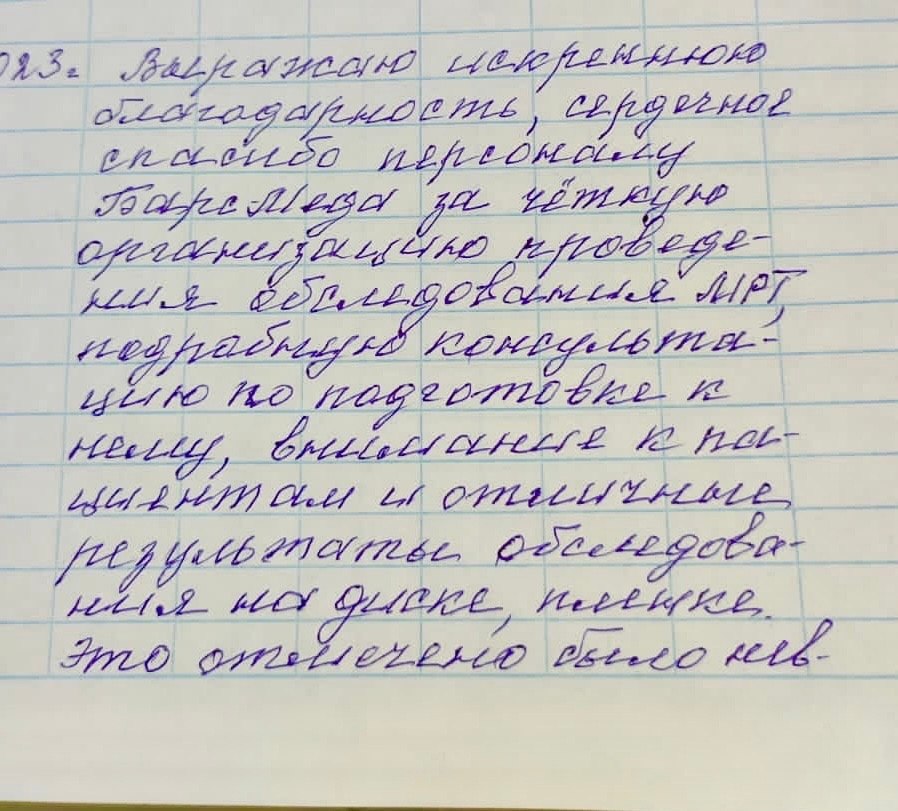 023г. Выражаю искреннюю
благодарность, сердечное
спасибо персоналу
БарсМеда за чёткую
организацию проведе-
ния обследования МРТ,
подробную консульта-
цию по подготовке к
нему, внимание к па-
циентам и отличные
результаты обследова-
ния на диске, пленке.
Это отмечено было нев-